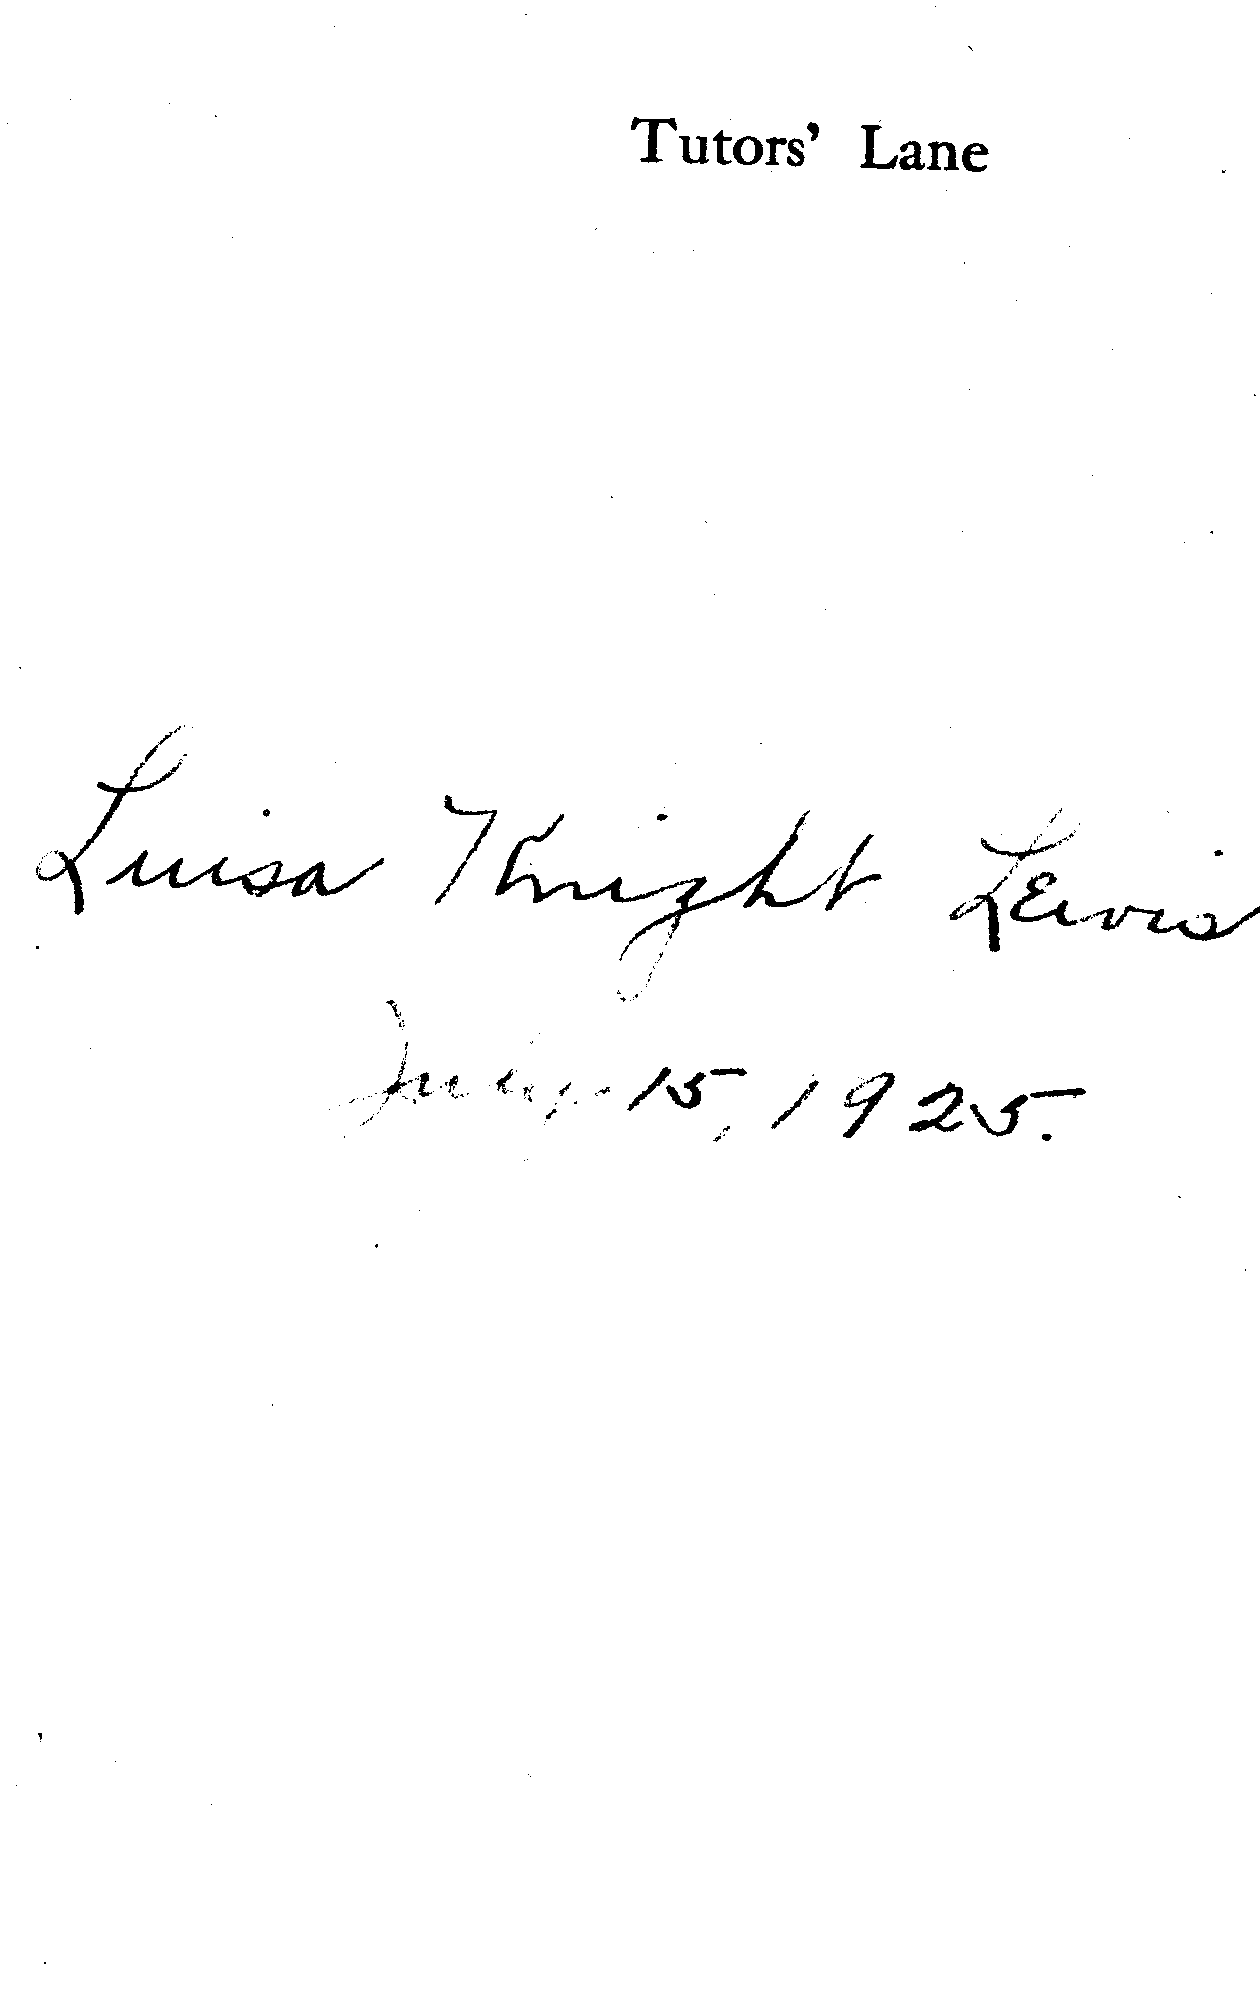 Tutors’ Lane
Luisa Knight Lewis
July 15, 1925.